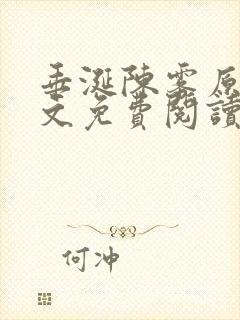 垂涎陳雾原
文免費閱讀
何冲